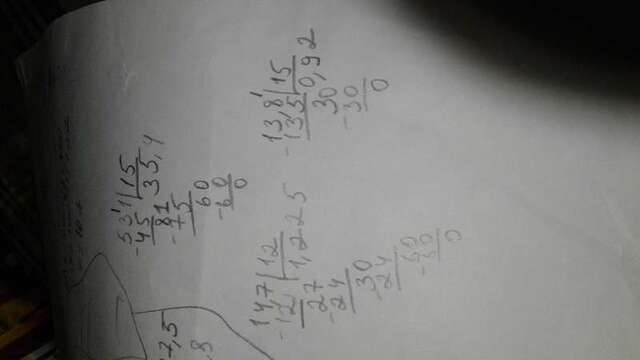 7,5
,8
531 15
-45 35,4
81
-75
60
-60
0
14,7 12
-12 1,225
27
-24
30
-24
60
-30
0
13,8 15
-135 0,92
30
-30
0